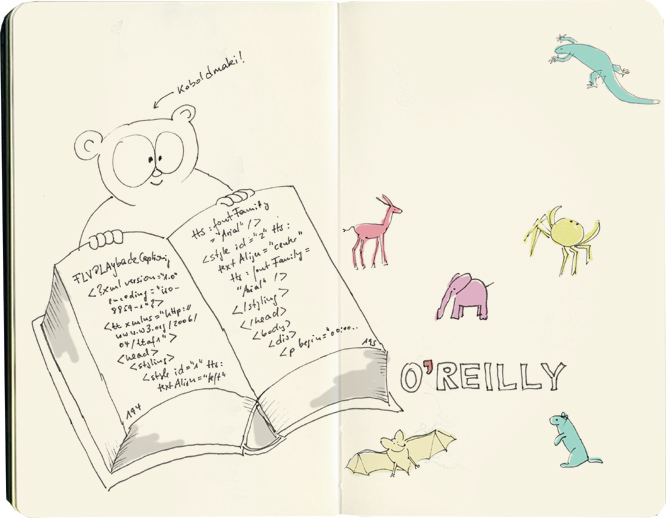 Koboldmaki!
FLVPlaybackCaptioning
<?xml version="1.0"
encoding="iso-
8859-1"?>
<tt xmlns="http://
www.w3.org/2006/
04/ttaf1">
<head>
<styling>
<style id="1" tts:
textAlign="left"
194
tts:fontFamily
="Arial" />
<style id="2" tts:
textAlign="center"
tts:fontFamily=
"Arial" />
</styling>
</head>
<body>
<div>
<p begin="00:00..
195
O'REILLY